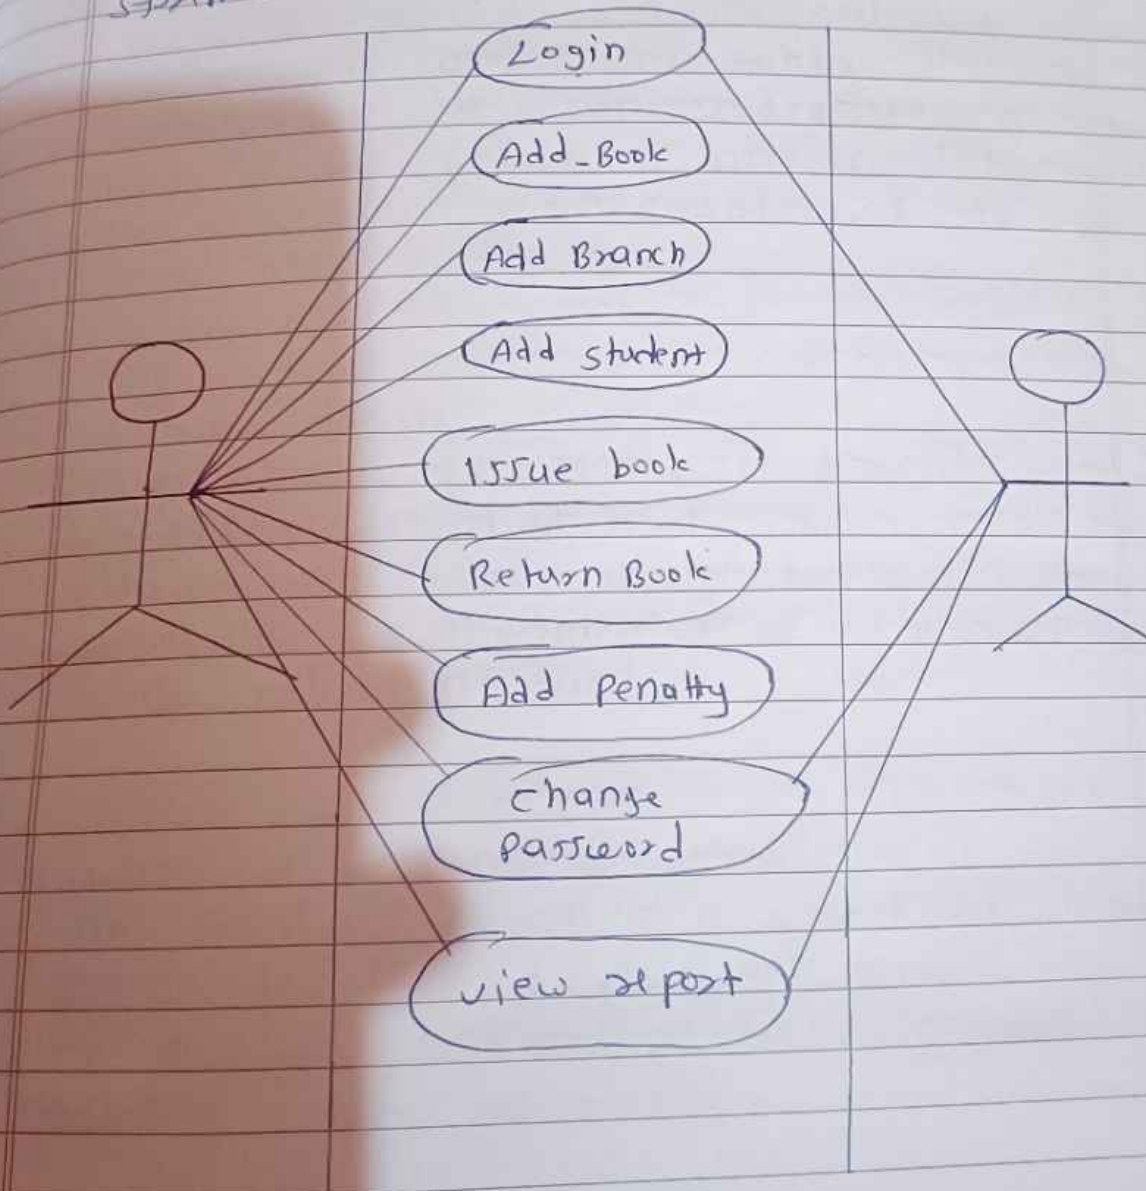 Login
Add_Book
Add Branch
Add student
Issue book
Return Book
Add Penalty
change
password
view report